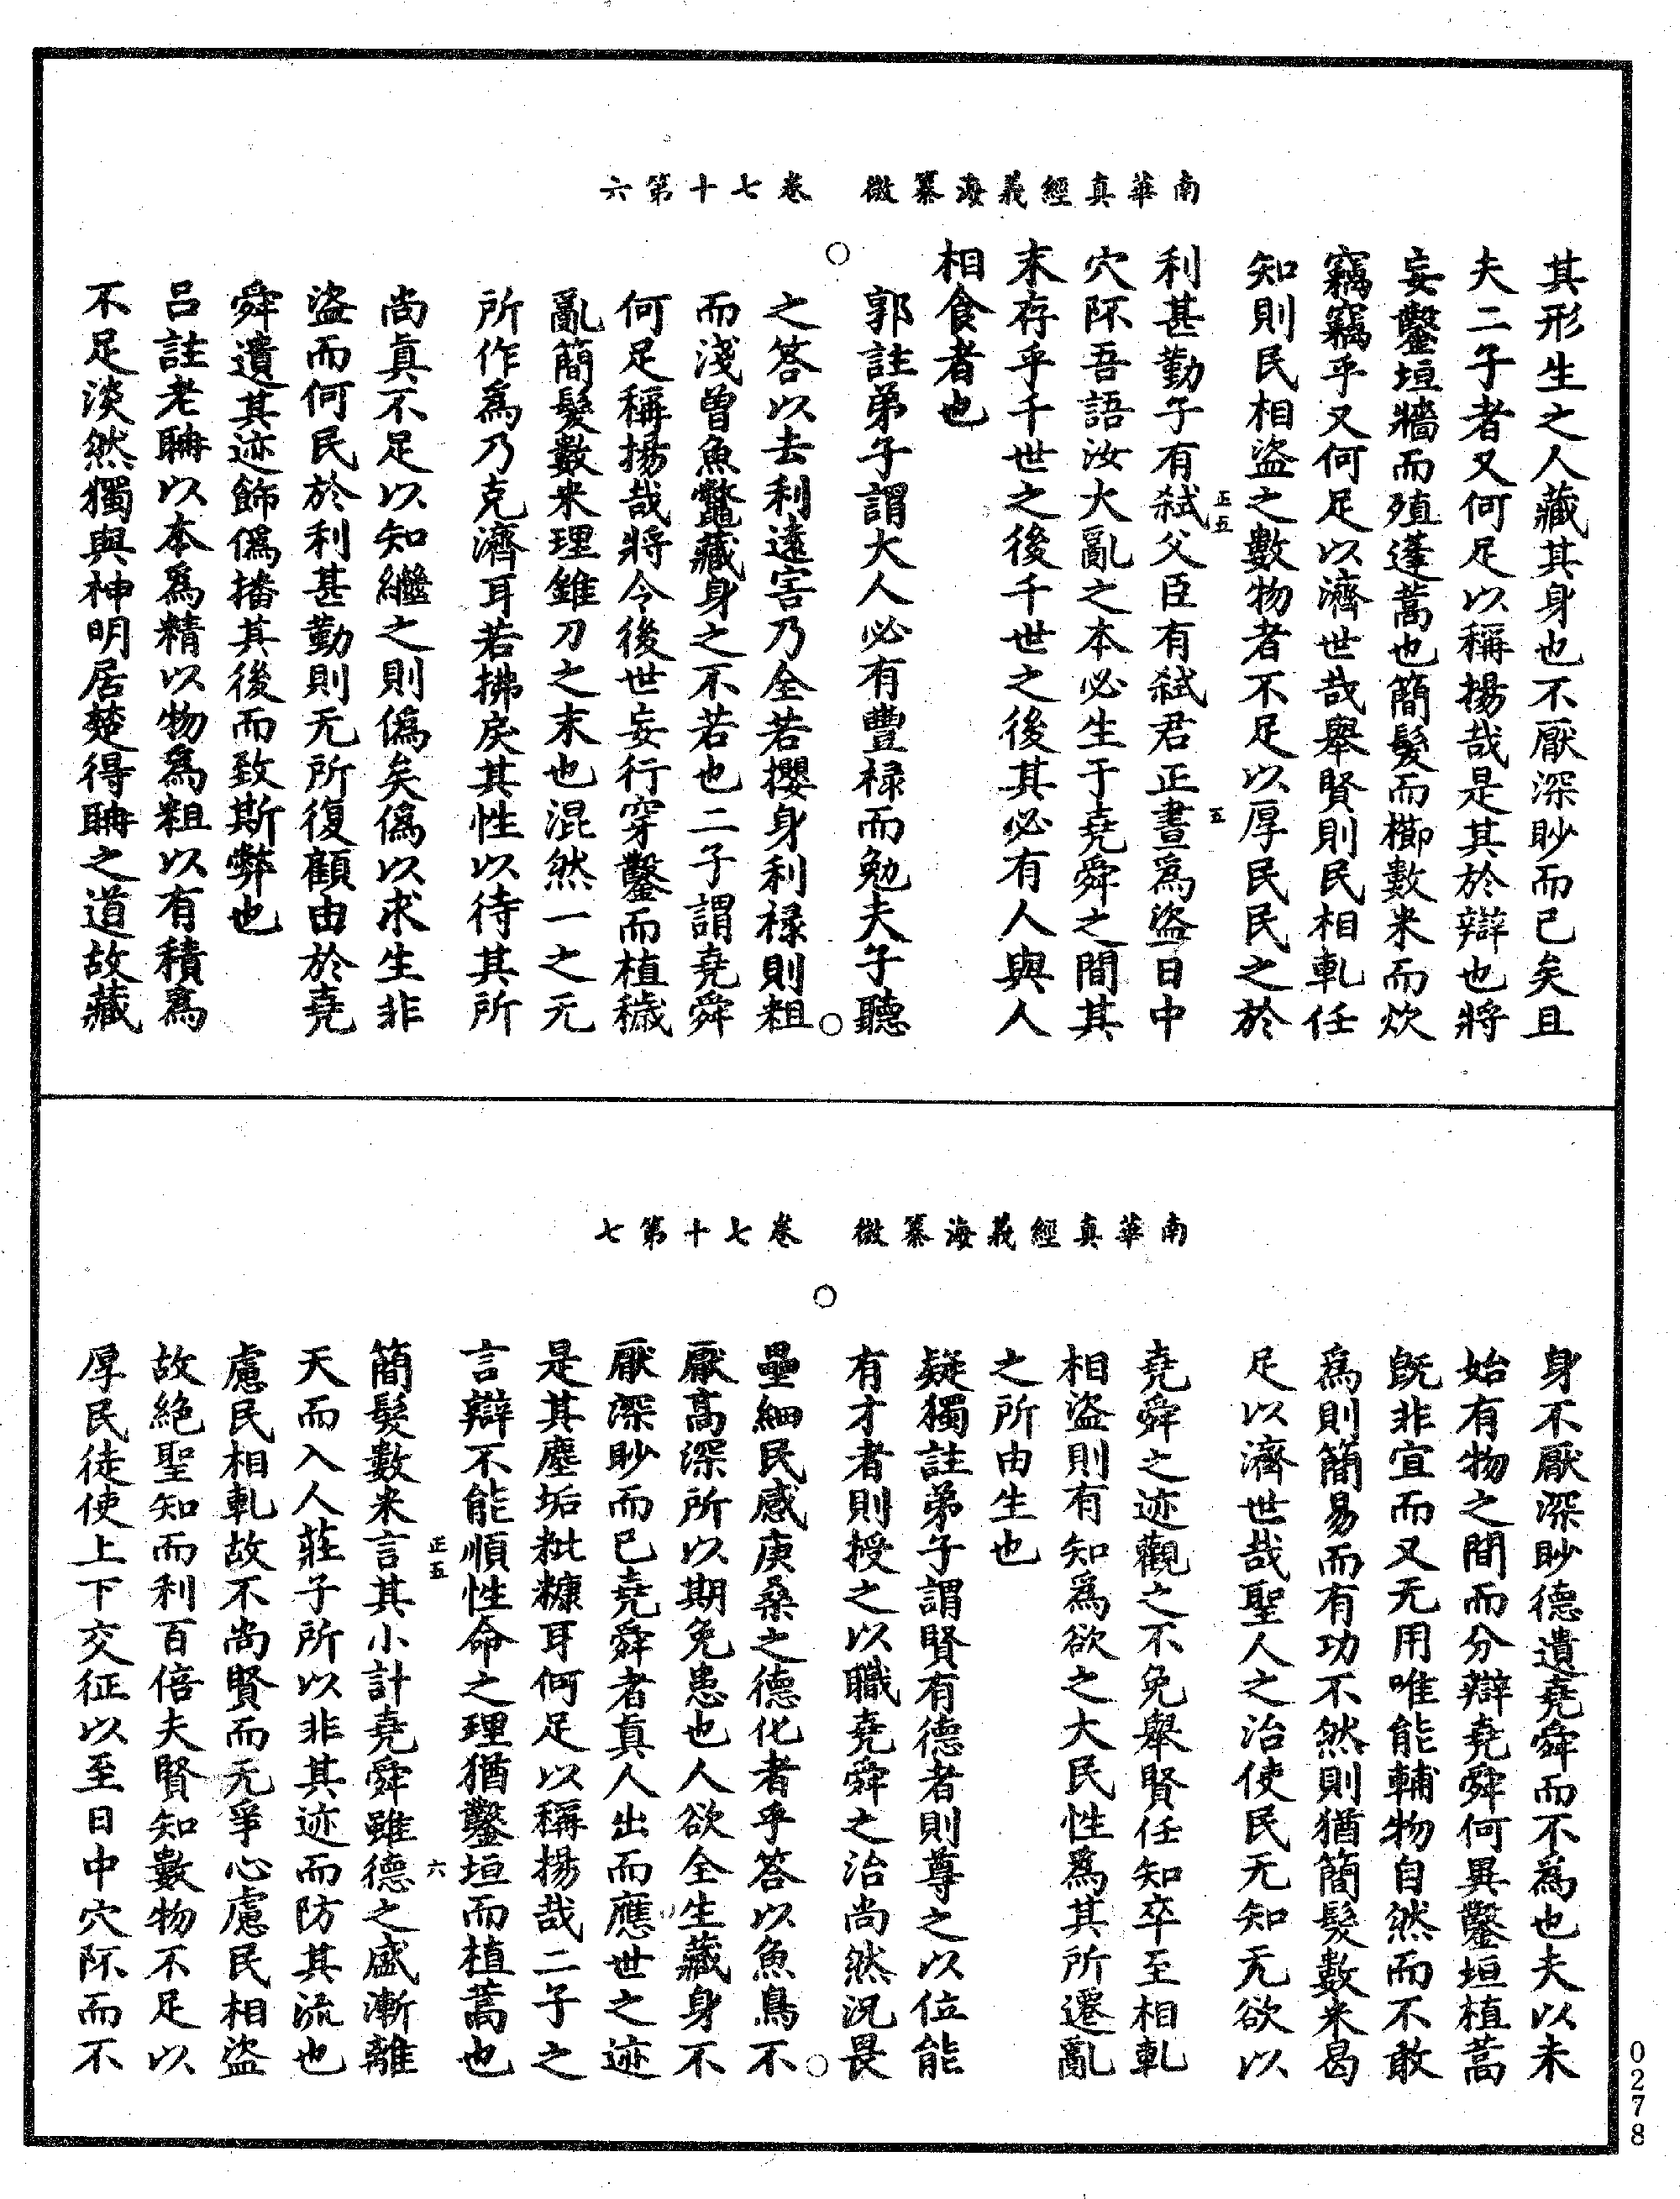 南華真經義海纂微　卷七十第六
其形生之人藏其身也不厭深眇而已矣且
夫二子者又何足以稱揚哉是其於辯也將
妄鑿垣牆而殖蓬蒿也簡髮而櫛數米而炊
竊竊乎又何足以濟世哉舉賢則民相軋任
知則民相盜之數物者不足以厚民民之於
利甚勤子有弒父臣有弒君正晝為盜日中
正五
五
穴阫吾語汝大亂之本必生于堯舜之間其
末存乎千世之後千世之後其必有人與人
相食者也
郭註弟子謂大人必有豐祿而勉夫子聽
之答以去利遠害乃全若攖身利祿則粗
而淺曾魚鱉藏身之不若也二子謂堯舜
何足稱揚哉將令後世妄行穿鑿而植穢
亂簡髮數米理錐刀之末也混然一之无
所作為乃克濟耳若拂戾其性以待其所
尚真不足以知繼之則偽矣偽以求生非
盜而何民於利甚勤則无所復顧由於堯
舜遺其迹飾偽播其後而致斯弊也
呂註老聃以本為精以物為粗以有積為
不足淡然獨與神明居楚得聃之道故藏
南華真經義海纂微　卷七十第七
身不厭深眇德遺堯舜而不為也夫以未
始有物之間而分辯堯舜何異鑿垣植蒿
既非宜而又无用唯能輔物自然而不敢
為則簡易而有功不然則猶簡髮數米曷
足以濟世哉聖人之治使民无知无欲以
堯舜之迹觀之不免舉賢任知卒至相軋
相盜則有知為欲之大民性為其所遷亂
之所由生也
疑獨註弟子謂賢有德者則尊之以位能
有才者則授之以職堯舜之治尚然況畏
壘細民感庚桑之德化者乎答以魚鳥不
厭高深所以期免患也人欲全生藏身不
厭深眇而已堯舜者真人出而應世之迹
是其塵垢粃糠耳何足以稱揚哉二子之
言辯不能順性命之理猶鑿垣而植蒿也
正五
六
簡髮數米言其小計堯舜雖德之盛漸離
天而入人莊子所以非其迹而防其流也
慮民相軋故不尚賢而无爭心慮民相盜
故絕聖知而利百倍夫賢知數物不足以
厚民徒使上下交征以至日中穴阫而不
0278